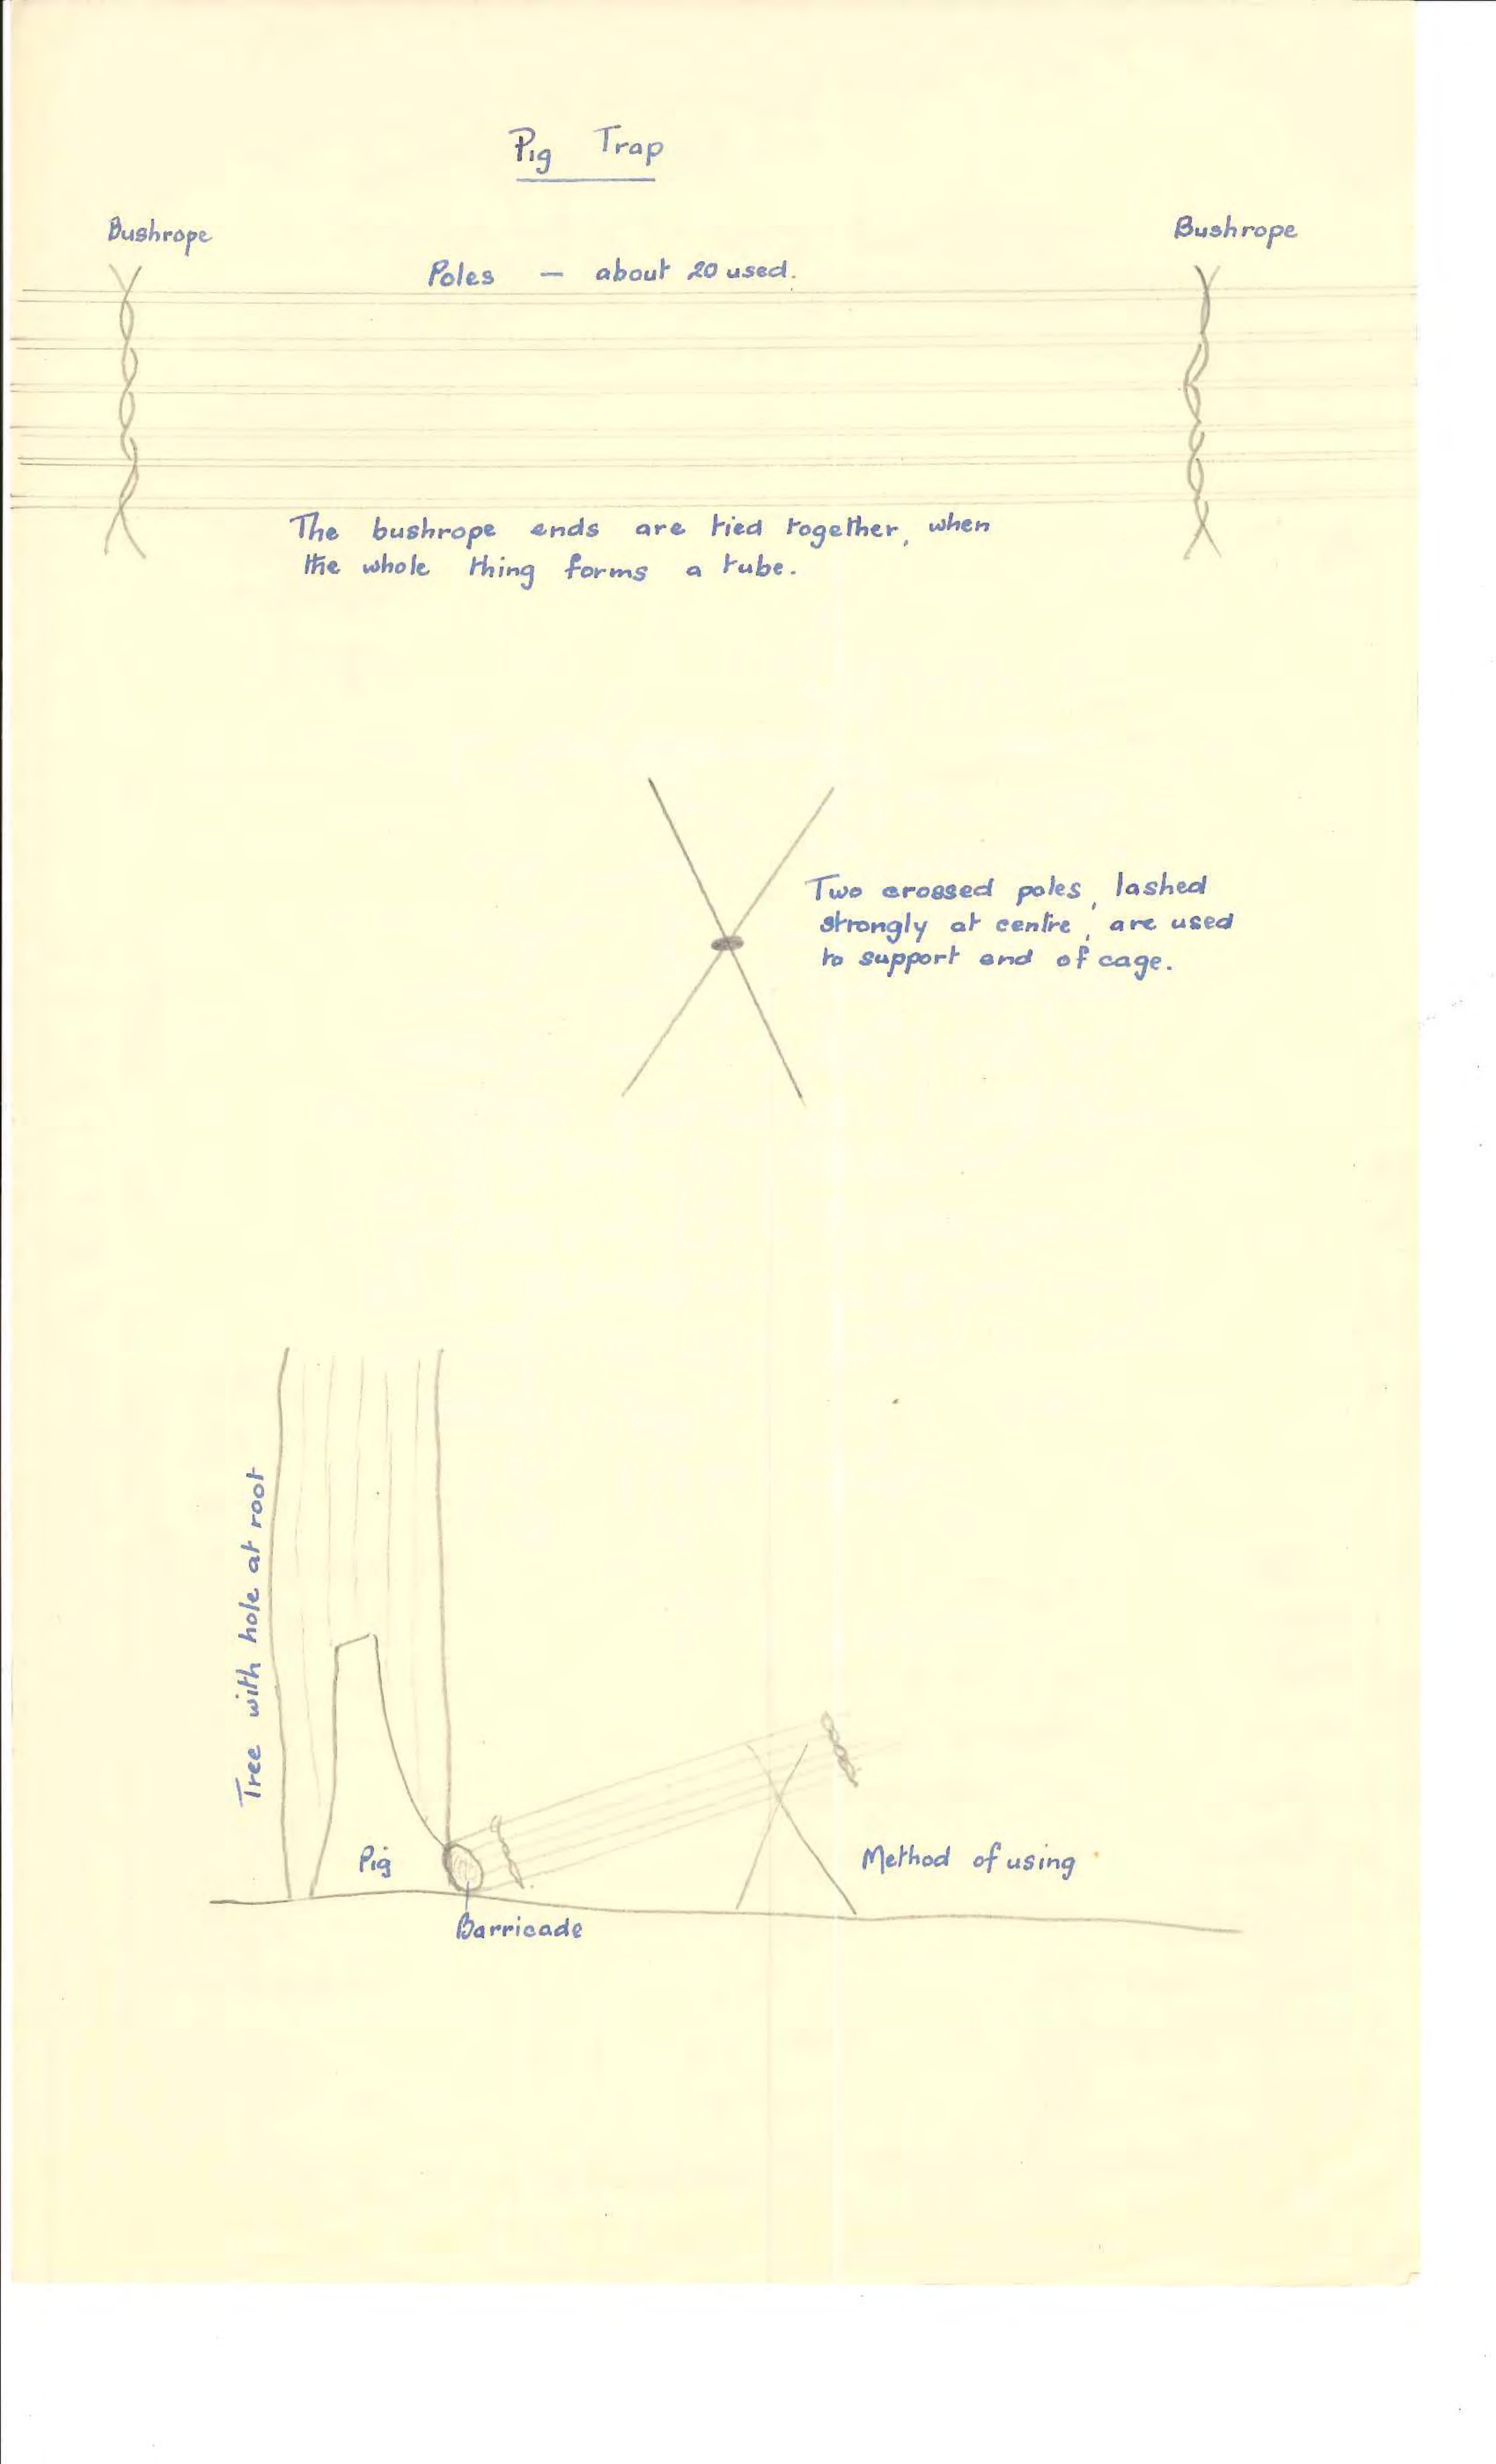 Pig Trap
Bushrope
Bushrope
Poles — about 20 used.
The bushrope ends are tied together, when
the whole thing forms a tube.
Two crossed poles, lashed
strongly at centre, are used
to support end of cage.
Tree with hole at root
Pig
Method of using
Barricade